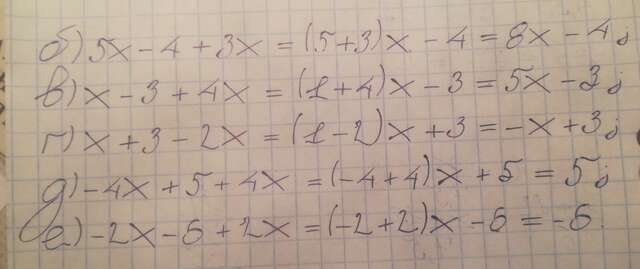 б) 5x - 4 + 3x = (5+3)x - 4 = 8x - 4;
в) x - 3 + 4x = (1+4)x - 3 = 5x - 3;
г) x + 3 - 2x = (1-2)x + 3 = -x + 3;
д) -4x + 5 + 4x = (-4+4)x + 5 = 5;
е) -2x - 6 + 2x = (-2+2)x - 6 = -6.